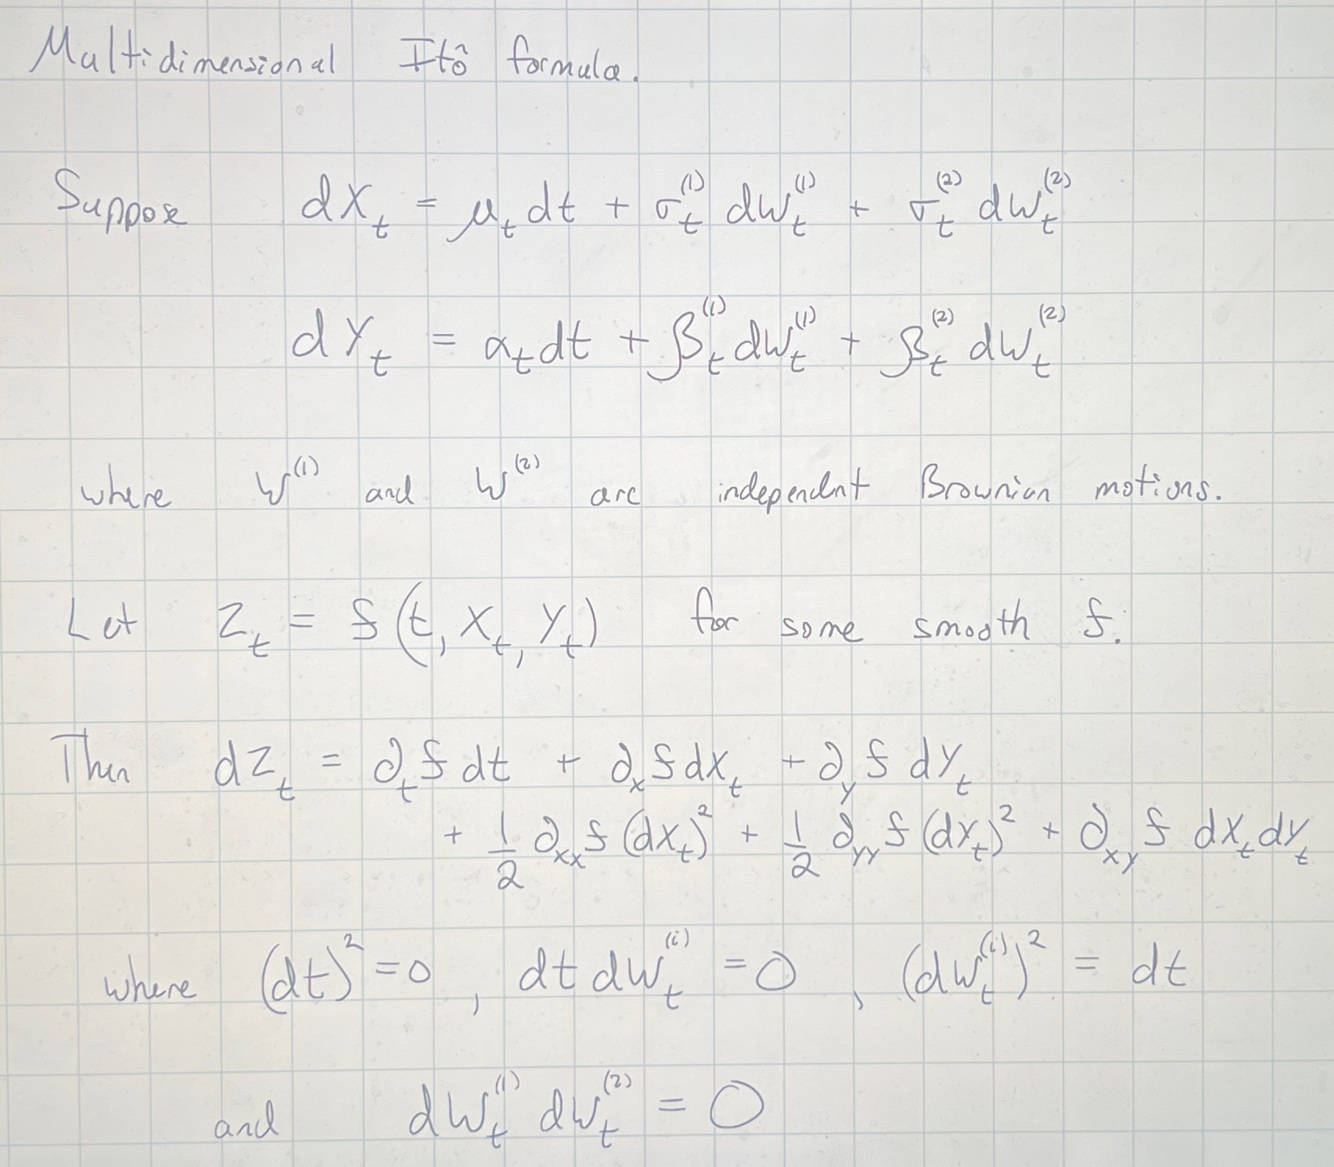 Multidimensional Itô formula.
Suppose dX_t = μ_t dt + σ_t^(1) dW_t^(1) + σ_t^(2) dW_t^(2)
dY_t = α_t dt + β_t^(1) dW_t^(1) + β_t^(2) dW_t^(2)
where W^(1) and W^(2) are independent Brownian motions.
Let Z_t = f(t, X_t, Y_t) for some smooth f.
Then dZ_t = ∂_t f dt + ∂_x f dX_t + ∂_y f dY_t
+ 1/2 ∂_xx f (dX_t)^2 + 1/2 ∂_yy f (dY_t)^2 + ∂_xy f dX_t dY_t
where (dt)^2 = 0, dt dW_t^(i) = 0, (dW_t^(i))^2 = dt
and dW_t^(1) dW_t^(2) = 0